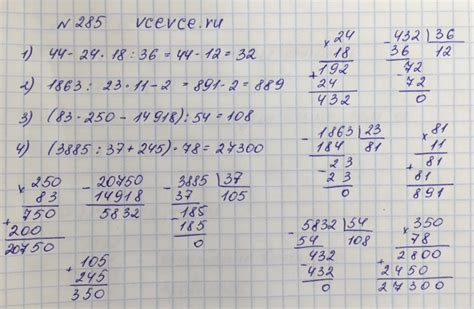 № 285 vcevce.ru
1) 44 - 24 · 18 : 36 = 44 - 12 = 32
2) 1863 : 23 · 11 - 2 = 891 - 2 = 889
3) (83 · 250 - 14918) : 54 = 108
4) (3885 : 37 + 245) · 78 = 27300
× 24
18
+ 192
24
432
- 432 | 36
36 12
- 72
72
0
- 1863 | 23
184 81
- 23
23
0
× 81
11
+ 81
81
891
× 250
83
+ 750
200
20750
- 20750
14918
5832
- 3885 | 37
37 105
- 185
185
0
+ 105
245
350
- 5832 | 54
54 108
- 432
432
0
× 350
78
+ 2800
2450
27300